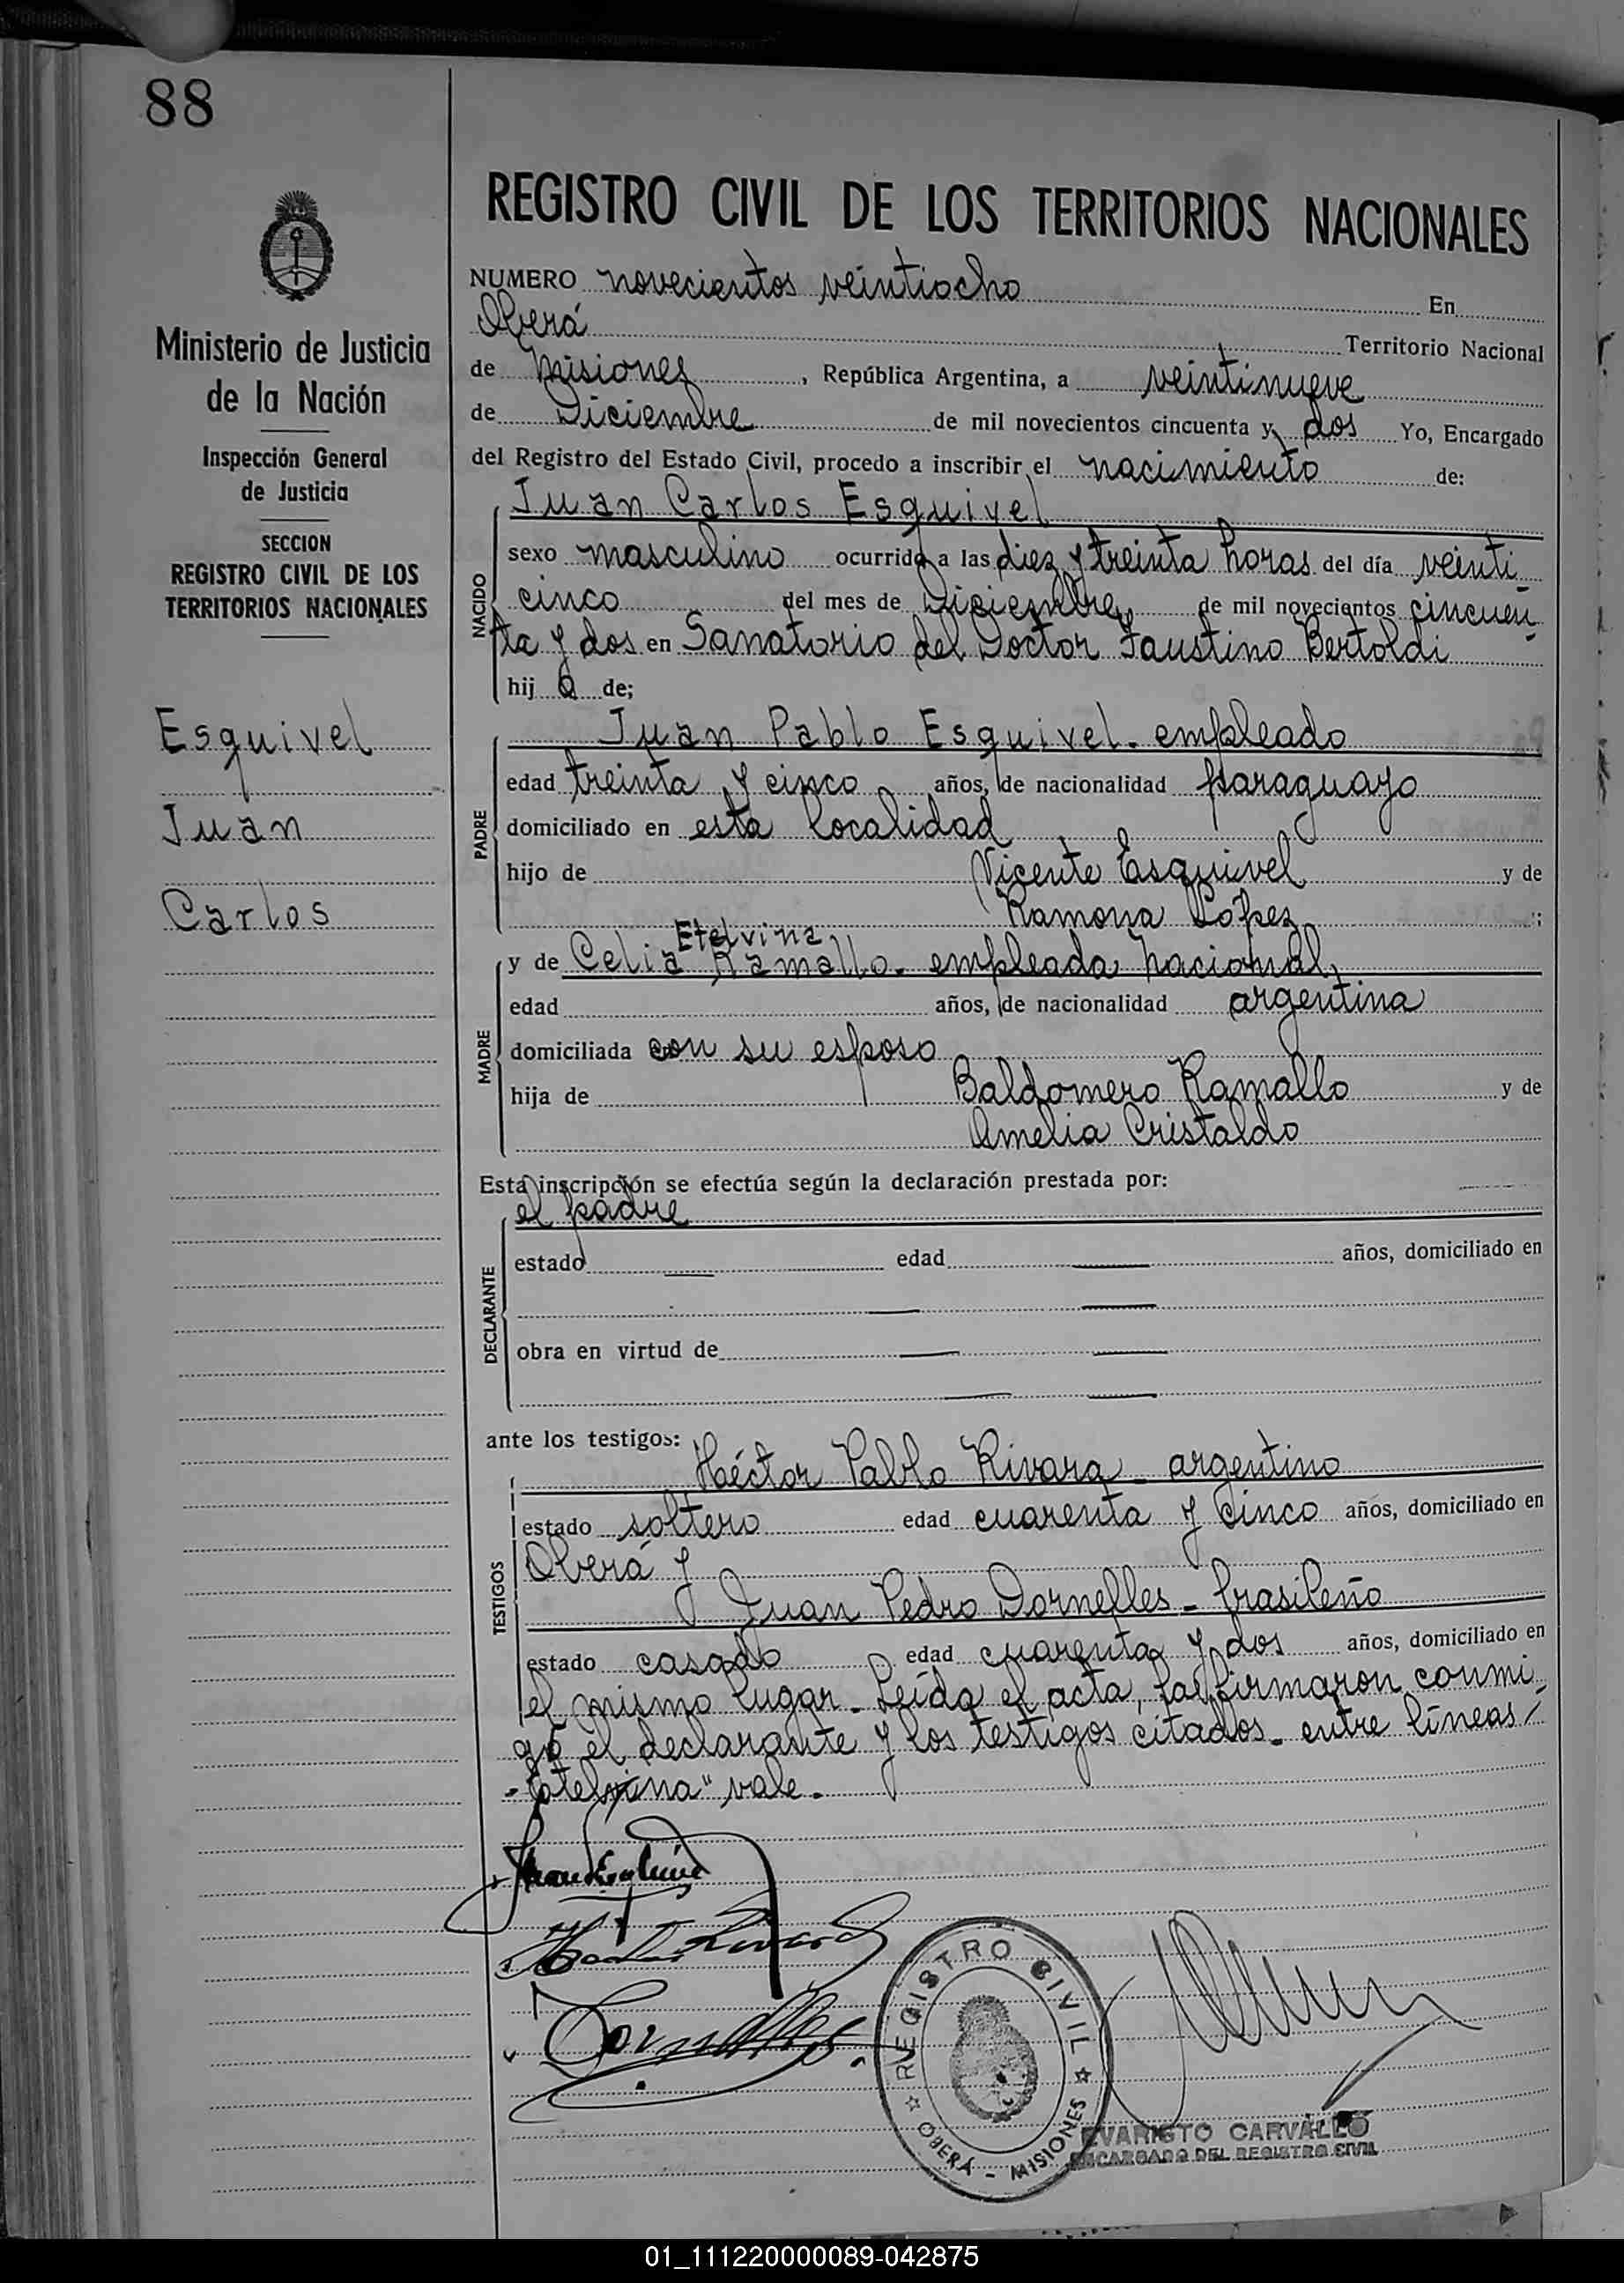 88
Ministerio de Justicia
de la Nación
Inspección General
de Justicia
SECCION
REGISTRO CIVIL DE LOS
TERRITORIOS NACIONALES
Esquivel
Juan
Carlos
REGISTRO CIVIL DE LOS TERRITORIOS NACIONALES
NUMERO novecientos veintiocho En
Oberá Territorio Nacional
de Misiones, República Argentina, a veintinueve
de Diciembre de mil novecientos cincuenta y dos Yo, Encargado
del Registro del Estado Civil, procedo a inscribir el nacimiento de:
NACIDO
Juan Carlos Esquivel
sexo masculino ocurrido a las diez y treinta horas del día veinti
cinco del mes de Diciembre de mil novecientos cincuen
ta y dos en Sanatorio del Doctor Faustino Bertoldi
hij o de;
PADRE
Juan Pablo Esquivel. empleado
edad treinta y cinco años, de nacionalidad paraguayo
domiciliado en esta localidad
hijo de Vicente Esquivel y de
Ramona López :
MADRE
Etelvina
y de Celia Ramallo. empleada nacional,
edad años, de nacionalidad argentina
domiciliada con su esposo
hija de Baldomero Ramallo y de
Amelia Cristaldo
Esta inscripción se efectúa según la declaración prestada por:
DECLARANTE
el padre
estado edad años, domiciliado en
obra en virtud de
ante los testigos:
TESTIGOS
Héctor Pablo Rivara - argentino
estado soltero edad cuarenta y cinco años, domiciliado en
Oberá y
Juan Pedro Dornelles - brasileño
estado casado edad cuarenta y dos años, domiciliado en
el mismo lugar - Leída el acta, la firmaron conmi
go el declarante y los testigos citados. entre líneas
"Etelvina" vale.
Dornelles
REGISTRO CIVIL
OBERÁ - MISIONES
EVARISTO CARVALLO
ENCARGADO DEL REGISTRO CIVIL
01_111220000089-042875